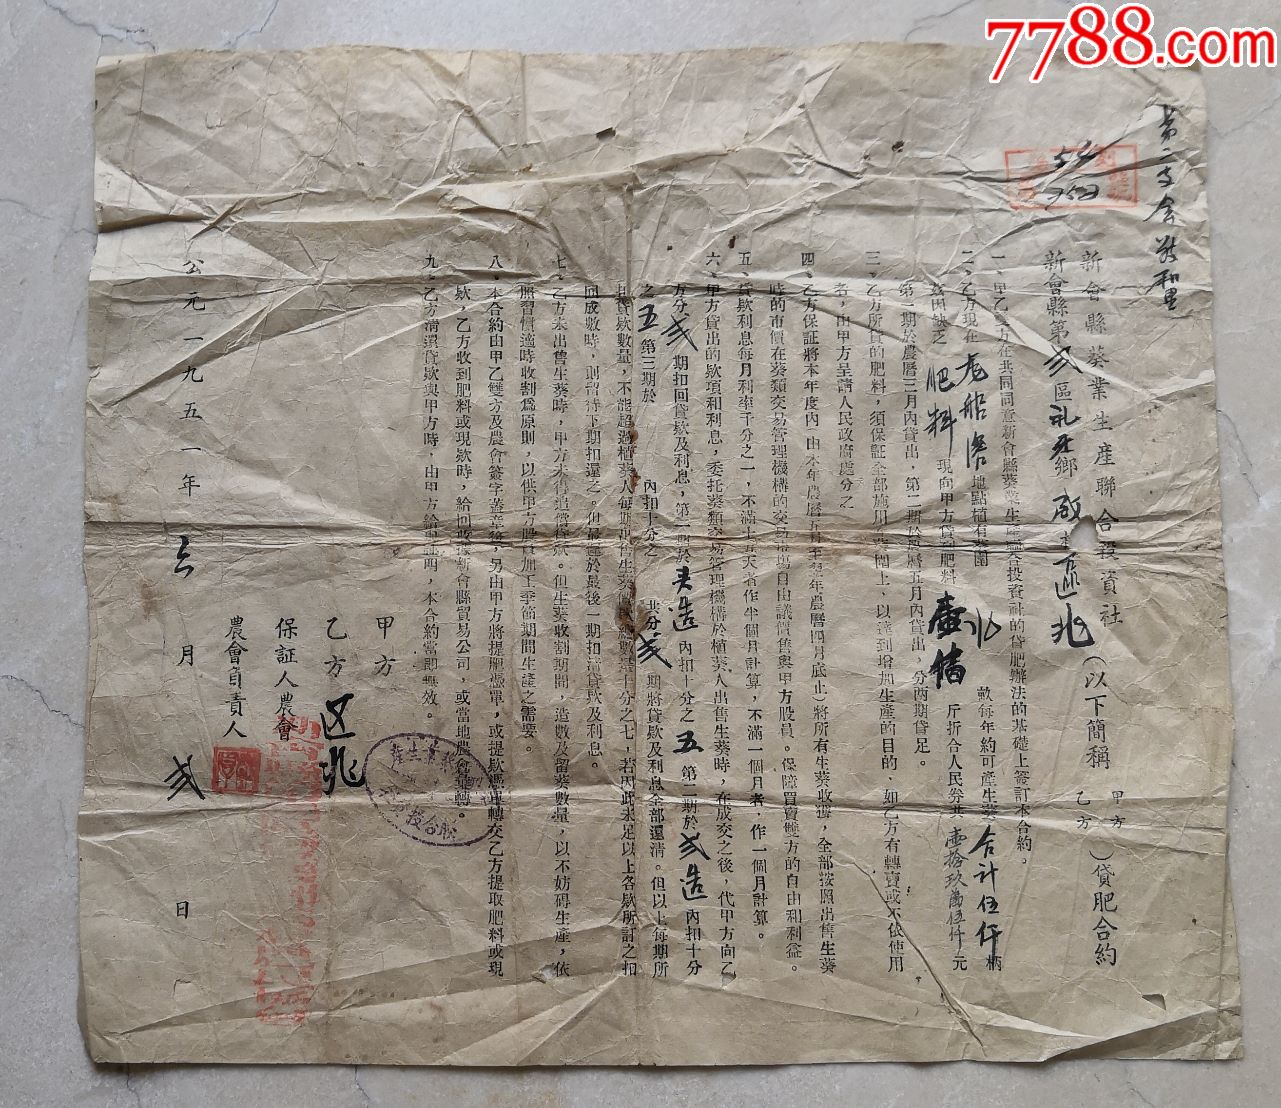 7788.com
新會縣葵業生產聯合投資社
新會縣第弍區礼 鄉 區兆
(以下簡稱甲方乙方)貸肥合約
一、甲乙二方在共同同意新會縣葵業生產聯合投資社的貸肥辦法的基礎上簽訂本合約。
二、乙方現在 地點植有葵園 畝每年約可產生葵合計伍仟柄
茲因缺乏肥料 現向甲方貸到肥料壹 斤折合人民券共壹拾玖萬伍仟元
第一期於農曆三月內貸出,第二期於農曆五月內貸出,分兩期貸足。
三、乙方所貸的肥料,須保証全部施用 圍上、以達到增加生產的目的、如乙方有轉賣或不依使用
者,由甲方呈請人民政府處分之
四、乙方保証將本年度內(由本年農曆五月至翌年農曆四月底止)將所有生葵收穫,全部按照出售生葵
時的市價在葵類交易管理機構的交易市場自由議價售與甲方股員。保障買賣雙方的自由和利益。
五、貸欵利息每月利率千分之一,不滿十五天者作半個月計算,不滿一個月者,作一個月計算。
六、甲方貸出的欵項和利息,委托葵類交易管理機構於植葵人出售生葵時,在成交之後,代甲方向乙
方分弍期扣回貸欵及利息,第一期於 造內扣十分之五第二期於弍造內扣十分
之五第三期於 內扣十分之 共分弍期將貸欵及利息全部還清。但以上每期所
扣貸欵數量,不能超過植葵人每期出售生葵 總數 十分之七,若因此未足以上各欵所訂之扣
回成數時,則留待下期扣還之。但最遲於最後一期扣清貸欵及利息。
七、乙方未出售生葵時,甲方未得追償貸欵。但生葵收割期間,造數及留葵數量,以不妨碍生產,依
照習慣適時收割爲原則,以供甲方股員加工季節期間生產之需要。
八、本合約由甲乙雙方及農會簽字蓋章後,另由甲方將提肥憑單,或提欵憑單轉交乙方提取肥料或現
欵,乙方收到肥料或現欵時,給回收據新會縣貿易公司,或當地農會彙轉。
九、乙方清還貸欵與甲方時,由甲方給回証明,本合約當即無效。
甲方
乙方 区兆
保証人農會
農會負責人
公元一九五一年 月弍日